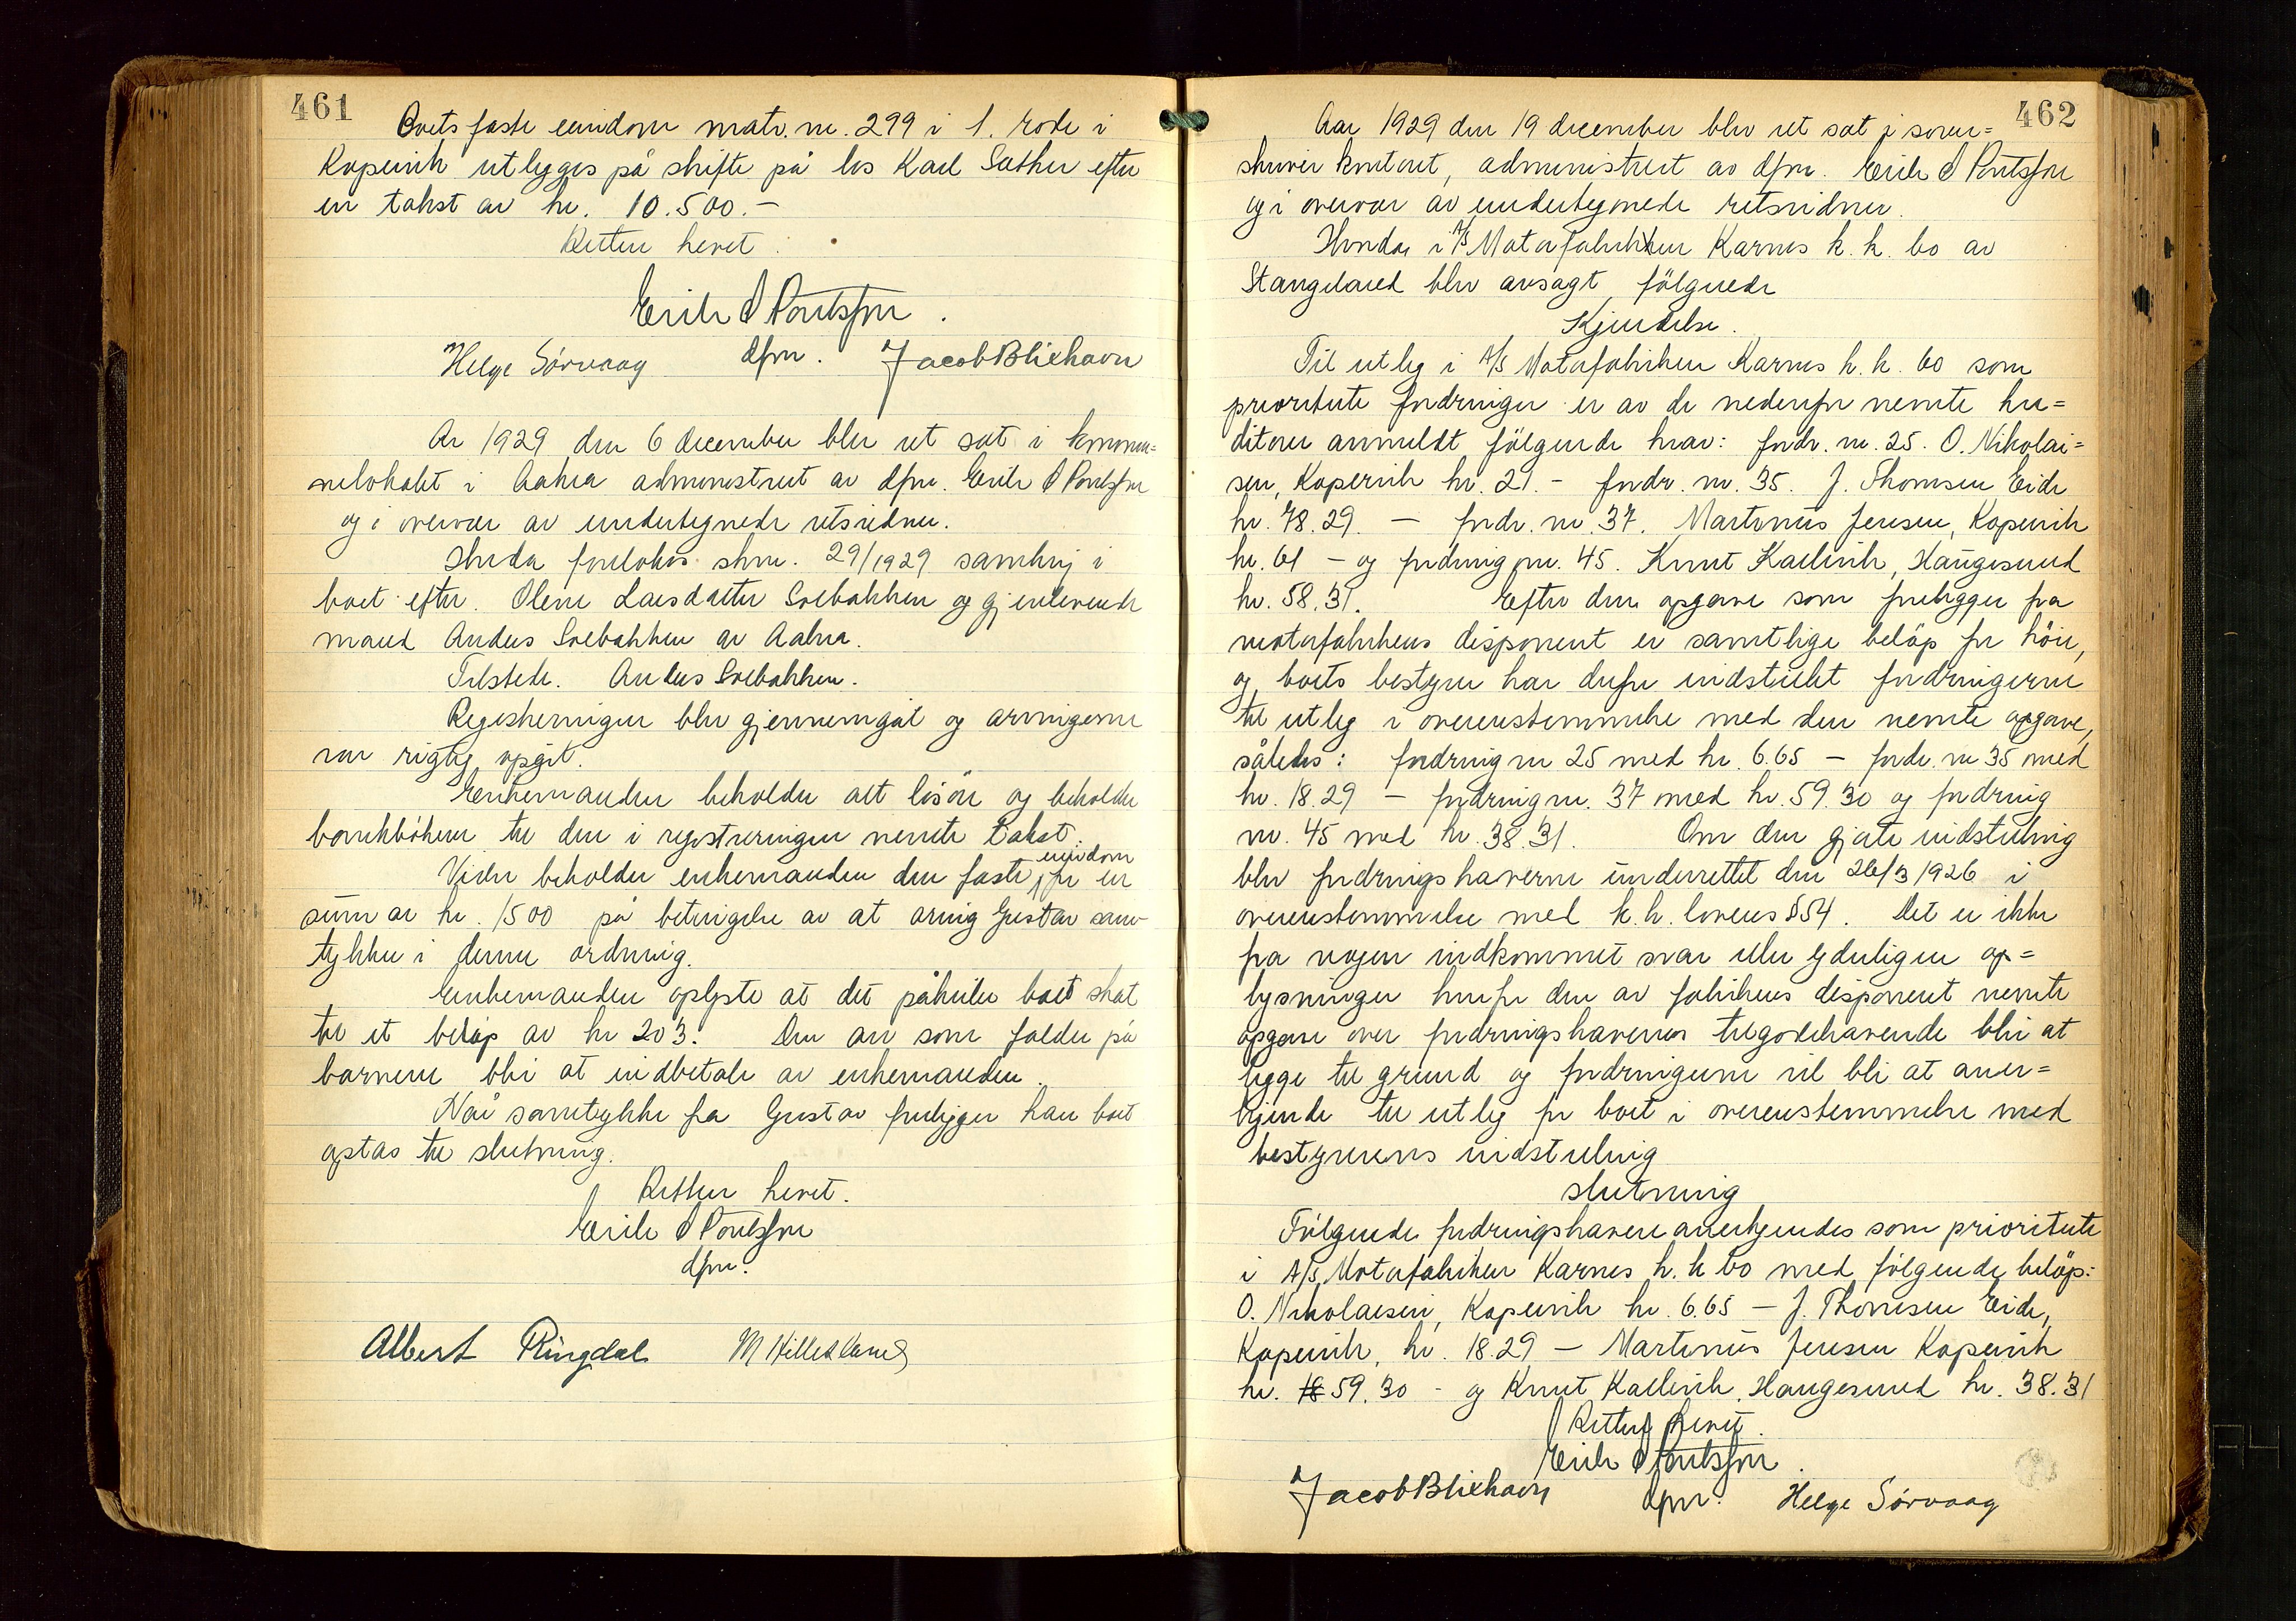 461
Boets faste eiendom matr. nr. 299 i 1. rode i
Kopervik utlægges på skifte på los Karl Sæther efter
en takst av kr. 10.500.-
Retten hevet.
Erik S Poulsson.
dfm.
Helge Sörvaag
Jacob Blixhavn
År 1929 den 6 december blev ret sat i kommu=
nelokalet i Aakra administrert av dfm. Erik S Poulsson
og i overvær av undertegnede retsvidner.
Hvorda foretokes skm. 29/1929 samkvæm i
boet efter Olene Larsdatter Svebakken og gjenlevende
mand Anders Svebakken av Aakra.
Tilstede. Anders Svebakken.
Registreringen blev gjennemgåt og arvingerne
var rigtig opgit.
Enkemanden beholder alt lösöre og beholder
bankböken til den i registreringen nevnte takst.
Vider beholder enkemanden den faste eiendom for en
sum av kr. 1500 på betingelse av at arving Gustav sam-
tykker i denne ordning.
Enkemanden oplyste at det påhviler boet skat
til et belöp av kr 203. Den arv som falder på
barnene blir at indbetale av enkemanden.
Når samtykke fra Gustav foreligger kan boet
optas til slutning.
Retten hevet.
Erik S Poulsson
dfm.
Albert Ringdal M Hillesland
462
Aar 1929 den 19 december blev ret sat i soren=
skriverkontoret, administrert av dfm. Erik S Poulsson
og i overvær av undertegnede retsvidner.
Hvorda i A/S Motorfabrikken Karnes k. k. bo av
Stangeland blev avsagt følgende
Kjendelse.
Til utlæg i A/S Motorfabriken Karnes k. k. bo som
prioriterte fordringer er av de nedenfor nevnte kre=
ditorer anmeldt fölgende krav: fordr. nr. 25. O. Nikolai=
sen, Kopervik kr. 21.- fordr. nr. 35. J. Thomsen Eide
kr. 78.29 — fordr. nr. 37. Martinus Jensen, Kopervik
kr. 61 – og fordring nr. 45. Knut Kallevik, Haugesund
kr. 58.31. Efter den opgave som foreligger fra
motorfabrikens disponent er samtlige belöp for höie,
og boets bestyrer har derfor indstillet fordringerne
til utlæg i overensstemmelse med den nevnte opgave,
således: fordring nr 25 med kr. 6.65 — fordr. nr 35 med
kr. 18.29 — fordring nr. 37 med kr. 59.30 og fordring
nr. 45 med kr. 38.31. Om den gjorte indstilling
blev fordringshaverne underrettet den 26/3 1926 i
overensstemmelse med k.k. lovens § 54. Det er ikke
fra nogen indkommet svar eller yderligere op=
lysninger hvorfor den av fabrikens disponent nevnte
opgave over fordringshavernes tilgodehavende blir at
lægge til grund og fordringerne vil bli at aner=
kjende til utlæg for boet i overensstemmelse med
bestyrerens indstilling
slutning
Fölgende fordringshavere anerkjendes som prioriterte
i A/S Motorfabriken Karnes k. k bo med fölgende belöp:
O. Nikolaisen, Kopervik kr. 6.65 — J. Thomsen Eide,
Kopervik, kr. 18.29 — Martinus Jensen Kopervik
kr. 18 59.30 – og Knut Kallevik, Haugesund kr. 38.31
Retten hevet.
Erik S Poulsson.
Jacob Blixhavn dfm. Helge Sörvaag